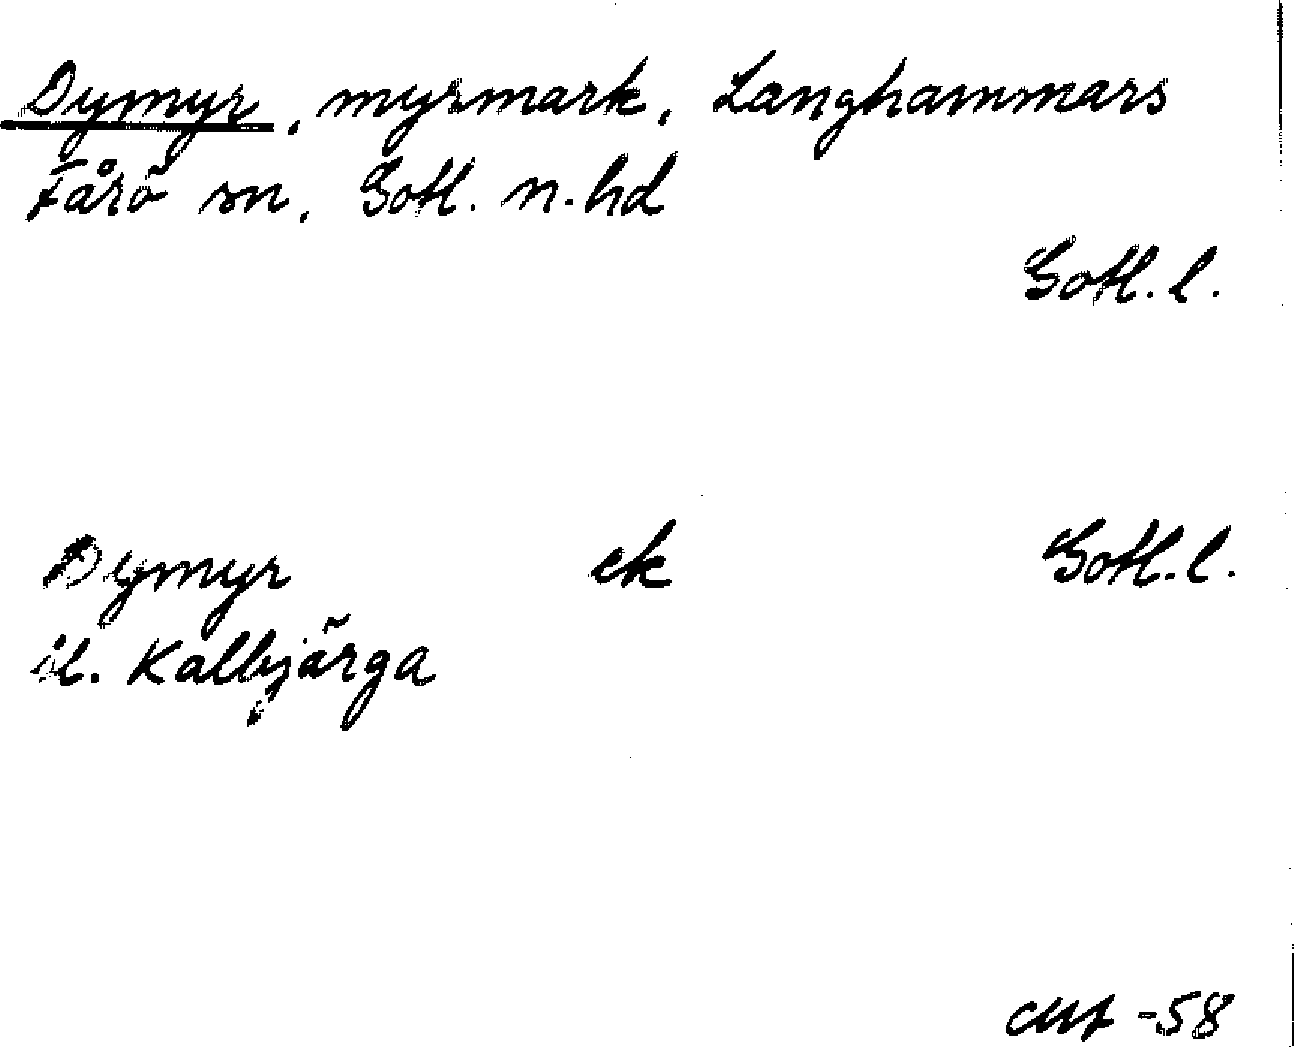 Dymyr, myrmark, Langhammars
Fårö sn, Gotl. n. hd
Gotl. l.
Dymyr ek Gotl. l.
Kalbjärga
-58